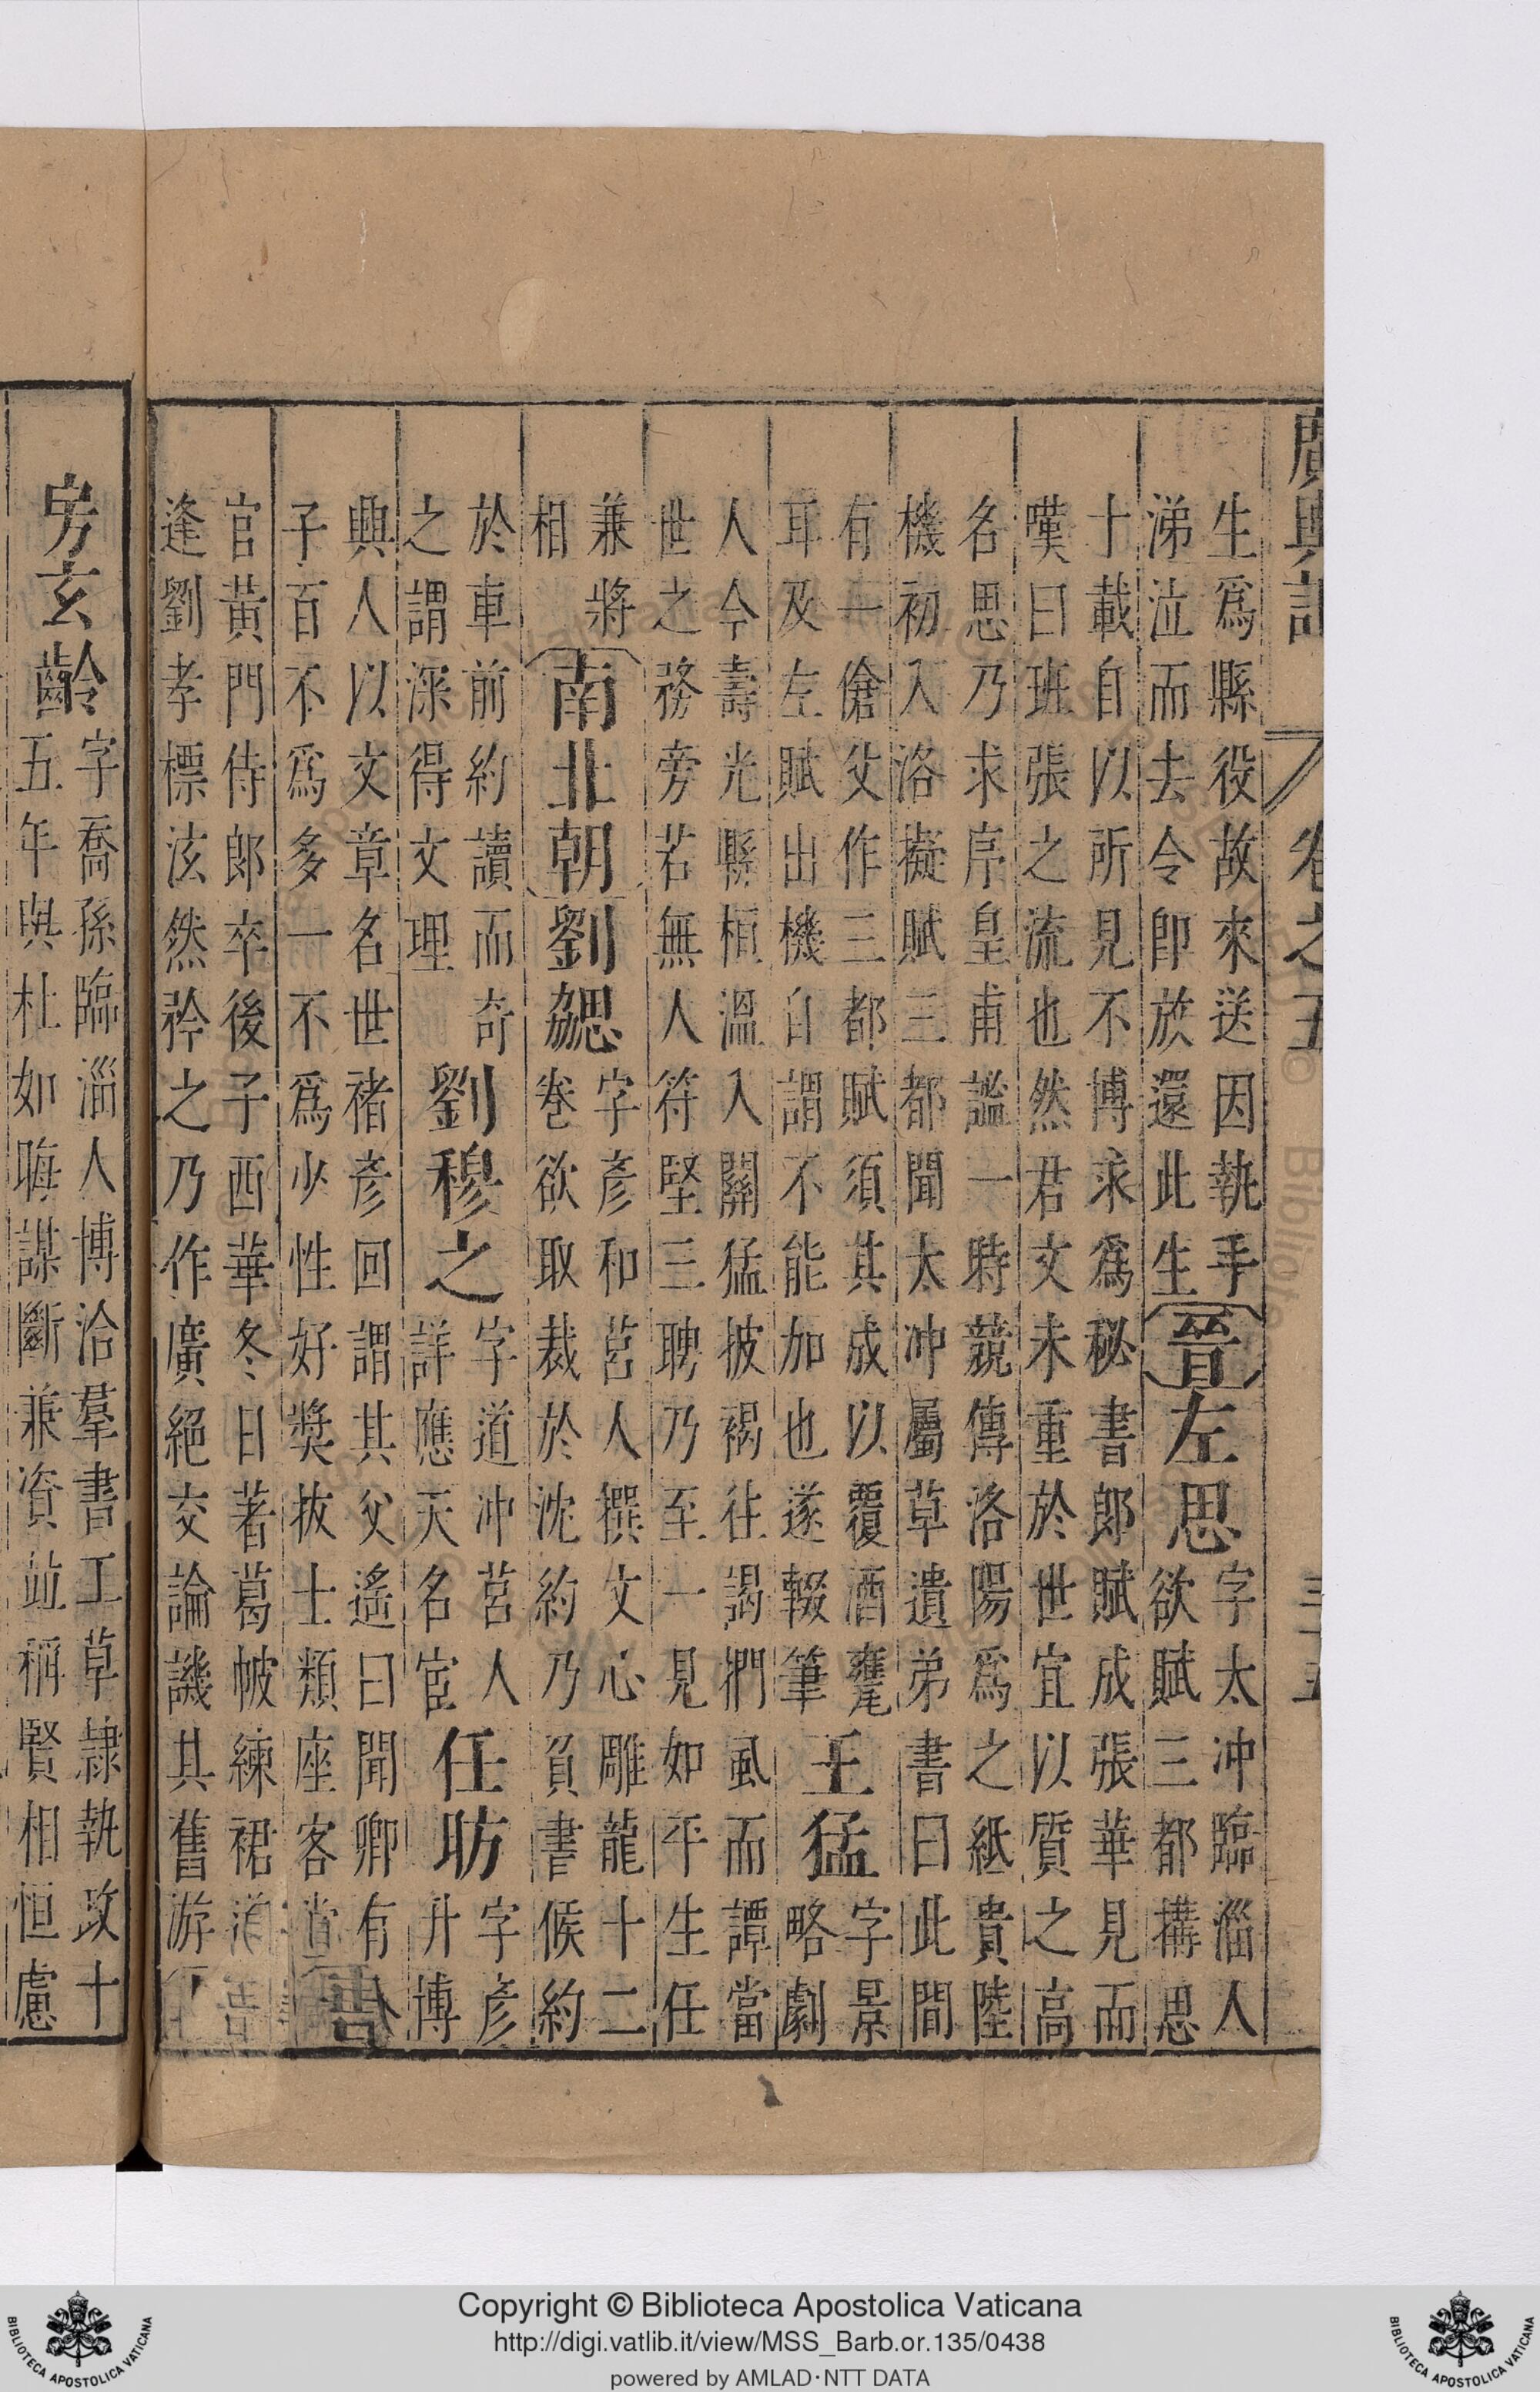 廣輿記 卷之五
生爲縣役故來送因執手
涕泣而去令卽放還此生
晉
左思
字太冲臨淄人
欲賦三都搆思
十載自以所見不博求爲秘書郎賦成張華見而
嘆曰班張之流也然君文未重於世宜以質之高
名思乃求序皇甫謐一時競傳洛陽爲之紙貴陸
機初入洛擬賦三都聞太冲屬草遺弟書曰此間
有一傖父作三都賦須其成以覆酒甕
耳及左賦出機自謂不能加也遂輟筆
王猛
字景
略劇
人今壽光縣桓溫入關猛披褐往謁捫虱而譚當
世之務旁若無人符堅三聘乃至一見如平生任
兼將
相
南北朝
劉勰
字彥和莒人撰文心雕龍十二
卷欲取裁於沈約乃負書候約
於車前約讀而奇
之謂深得文理
劉穆之
字道冲莒人
詳應天名宦
任昉
字彥
升博
興人以文章名世褚彥回謂其父遙曰聞卿有令
子百不爲多一不爲少性好獎拔士類座客
官黃門侍郎卒後子西華冬日著葛帔練裙
逢劉孝標泫然矜之乃作廣絕交論譏其舊游
房玄齡
字喬孫臨淄人博洽羣書工草隷執政十
五年與杜如晦謀斷兼資並稱賢相恒慮
Copyright © Biblioteca Apostolica Vaticana
http://digi.vatlib.it/view/MSS_Barb.or.135/0438
powered by AMLAD·NTT DATA
BIBLIOTECA APOSTOLICA VATICANA
BIBLIOTECA APOSTOLICA VATICANA